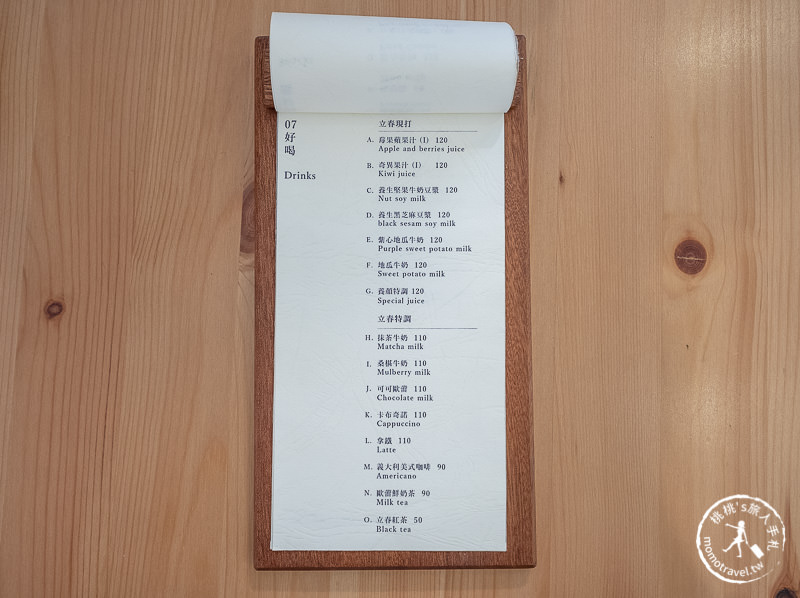 07
好
喝
Drinks
立春現打
A. 莓果蘋果汁 (I) 120
Apple and berries juice
B. 奇異果汁 (I) 120
Kiwi juice
C. 養生堅果牛奶豆漿 120
Nut soy milk
D. 養生黑芝麻豆漿 120
black sesam soy milk
E. 紫心地瓜牛奶 120
Purple sweet potato milk
F. 地瓜牛奶 120
Sweet potato milk
G. 養顏特調 120
Special juice
立春特調
H. 抹茶牛奶 110
Matcha milk
I. 桑椹牛奶 110
Mulberry milk
J. 可可歐蕾 110
Chocolate milk
K. 卡布奇諾 110
Cappuccino
L. 拿鐵 110
Latte
M. 義大利美式咖啡 90
Americano
N. 歐蕾鮮奶茶 90
Milk tea
O. 立春紅茶 50
Black tea
桃桃's旅人手札
momotravel.tw